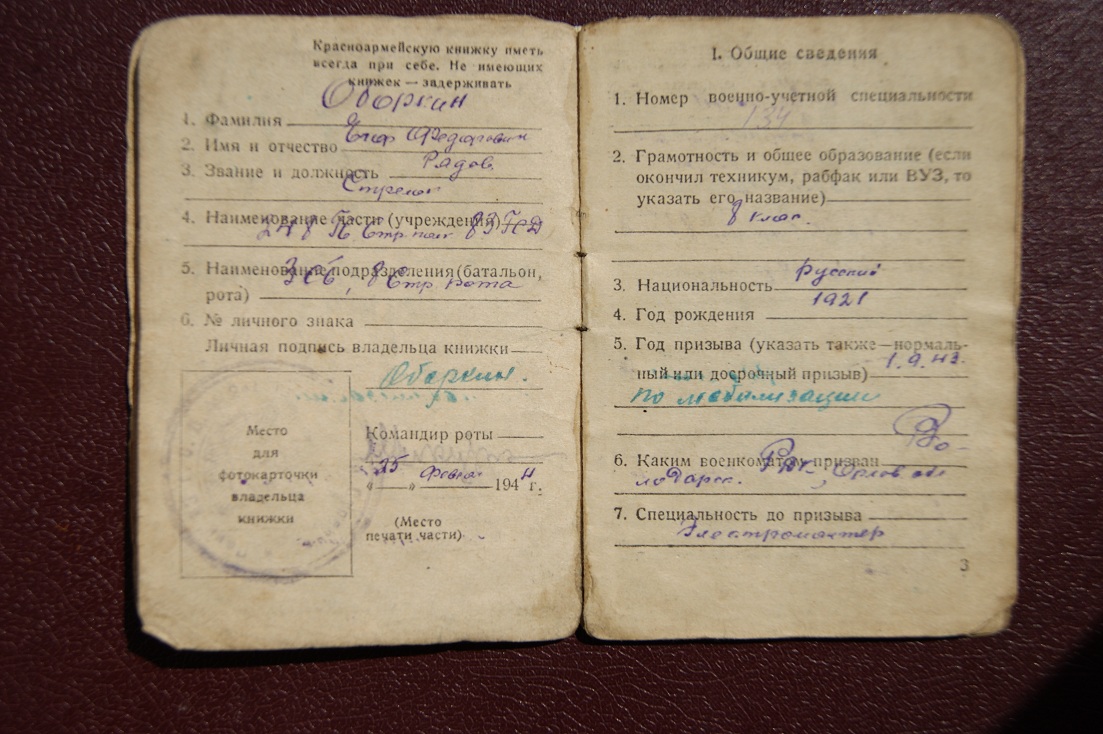 Красноармейскую книжку иметь
всегда при себе. Не имеющих
книжек — задерживать
Оборкин
1. Фамилия
Егор Федорович
2. Имя и отчество
Рядов.
3. Звание и должность
Стрелок
4. Наименование части (учреждения)
248 Стр полк
5. Наименование подразделения (батальон,
3 сб, 8 Стр рота
рота)
6. № личного знака
Личная подпись владельца книжки
Оборкин.
Место
для
фотокарточки
владельца
книжки
Командир роты
„25" Февраля 1944 г.
(Место
печати части)
I. Общие сведения
1. Номер военно-учетной специальности
134
2. Грамотность и общее образование (если
окончил техникум, рабфак или ВУЗ, то
указать его название)
8 клас.
русский
3. Национальность
1921
4. Год рождения
5. Год призыва (указать также — нормаль-
1.9.43.
ный или досрочный призыв)
по мобилизации
Во-
6. Каким военкоматом призван
лодарск. РВК, Орлов обл
7. Специальность до призыва
Электромонтер
3